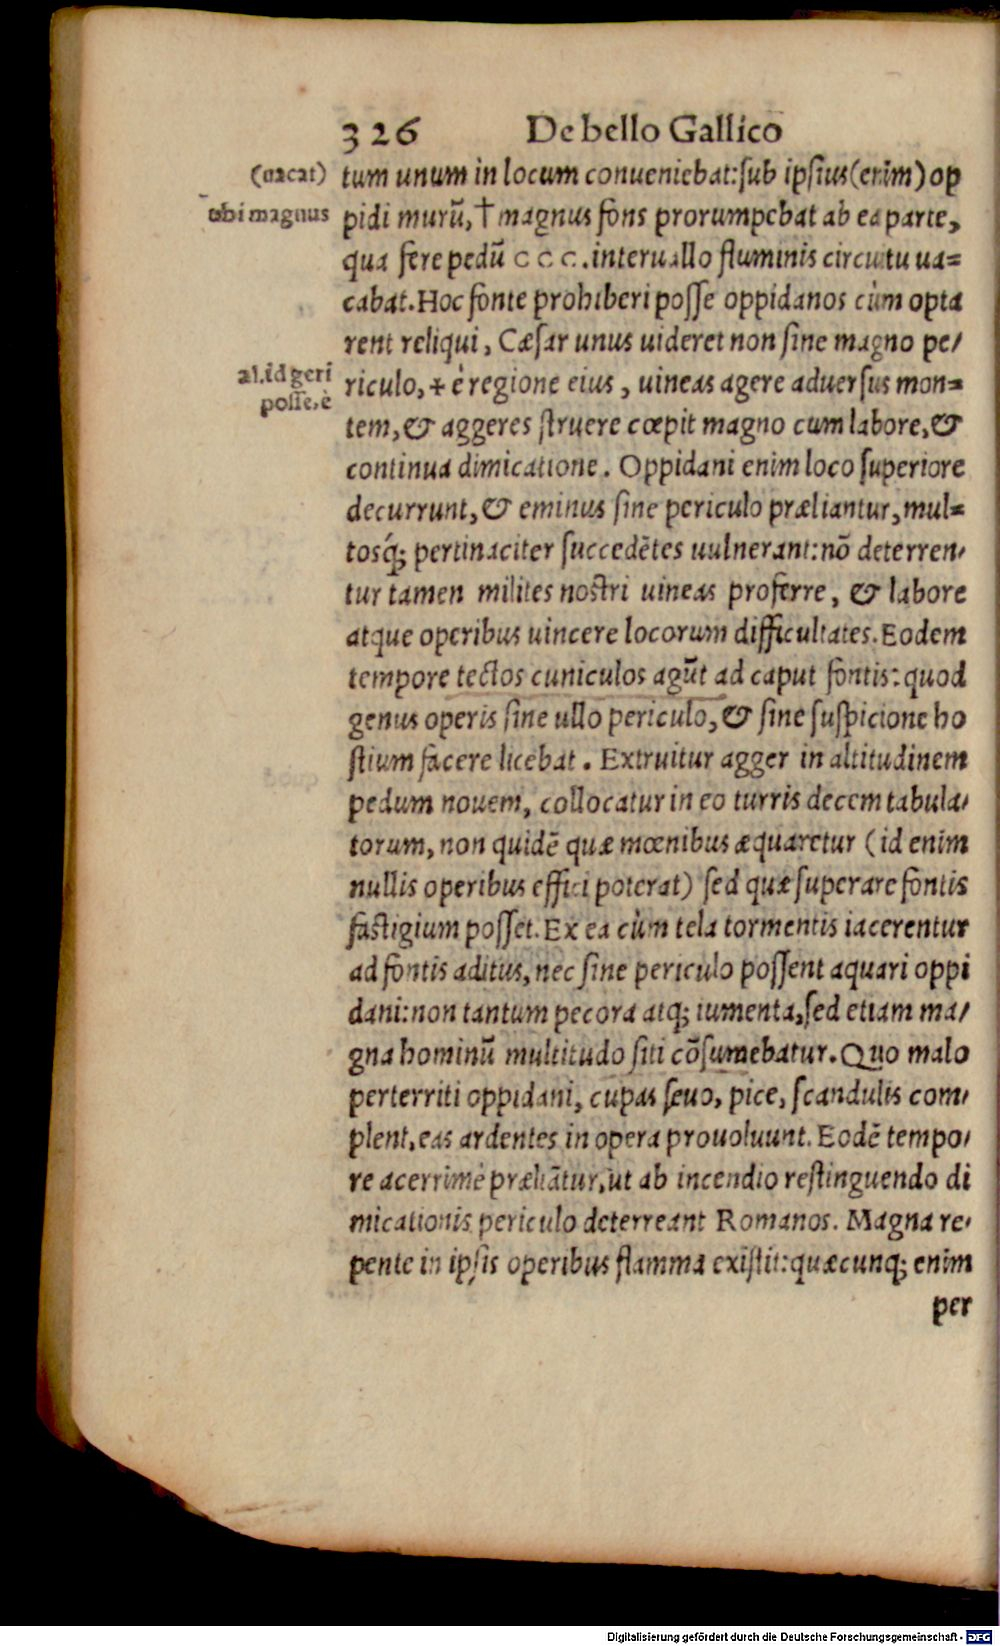 326 De bello Gallico
(uacat) tum unum in locum conueniebat: sub ipsius (enim) op
ubi magnus pidi murũ, † magnus fons prorumpebat ab ea parte,
qua fere pedũ c c c. interuallo fluminis circuitu ua=
cabat. Hoc fonte prohiberi posse oppidanos cùm opta
rent reliqui, Cæsar unus uideret non sine magno pe/
al. id geri riculo, + è regione eius, uineas agere aduersus mon=
posse, è
tem, & aggeres struere cœpit magno cum labore, &
continua dimicatione. Oppidani enim loco superiore
decurrunt, & eminus sine periculo præliantur, mul=
tosq́; pertinaciter succedẽtes uulnerant: nõ deterren/
tur tamen milites nostri uineas proferre, & labore
atque operibus uincere locorum difficultates. Eodem
tempore tectos cuniculos agũt ad caput fontis: quod
genus operis sine ullo periculo, & sine suspicione ho
stium facere licebat. Extruitur agger in altitudinem
pedum nouem, collocatur in eo turris decem tabula/
torum, non quidẽ quæ mœnibus æquaretur (id enim
nullis operibus effici poterat) sed quæ superare fontis
fastigium posset. Ex ea cùm tela tormentis iacerentur
ad fontis aditus, nec sine periculo possent aquari oppi
dani: non tantum pecora atq; iumenta, sed etiam ma/
gna hominũ multitudo siti cõsumebatur. Quo malo
perterriti oppidani, cupas seuo, pice, scandulis com/
plent, eas ardentes in opera prouoluunt. Eodẽ tempo/
re acerrimè præliãtur, ut ab incendio restinguendo di
micationis periculo deterreant Romanos. Magna re/
pente in ipsis operibus flamma existit: quæcunq; enim
per
Digitalisierung gefördert durch die Deutsche Forschungsgemeinschaft - DFG